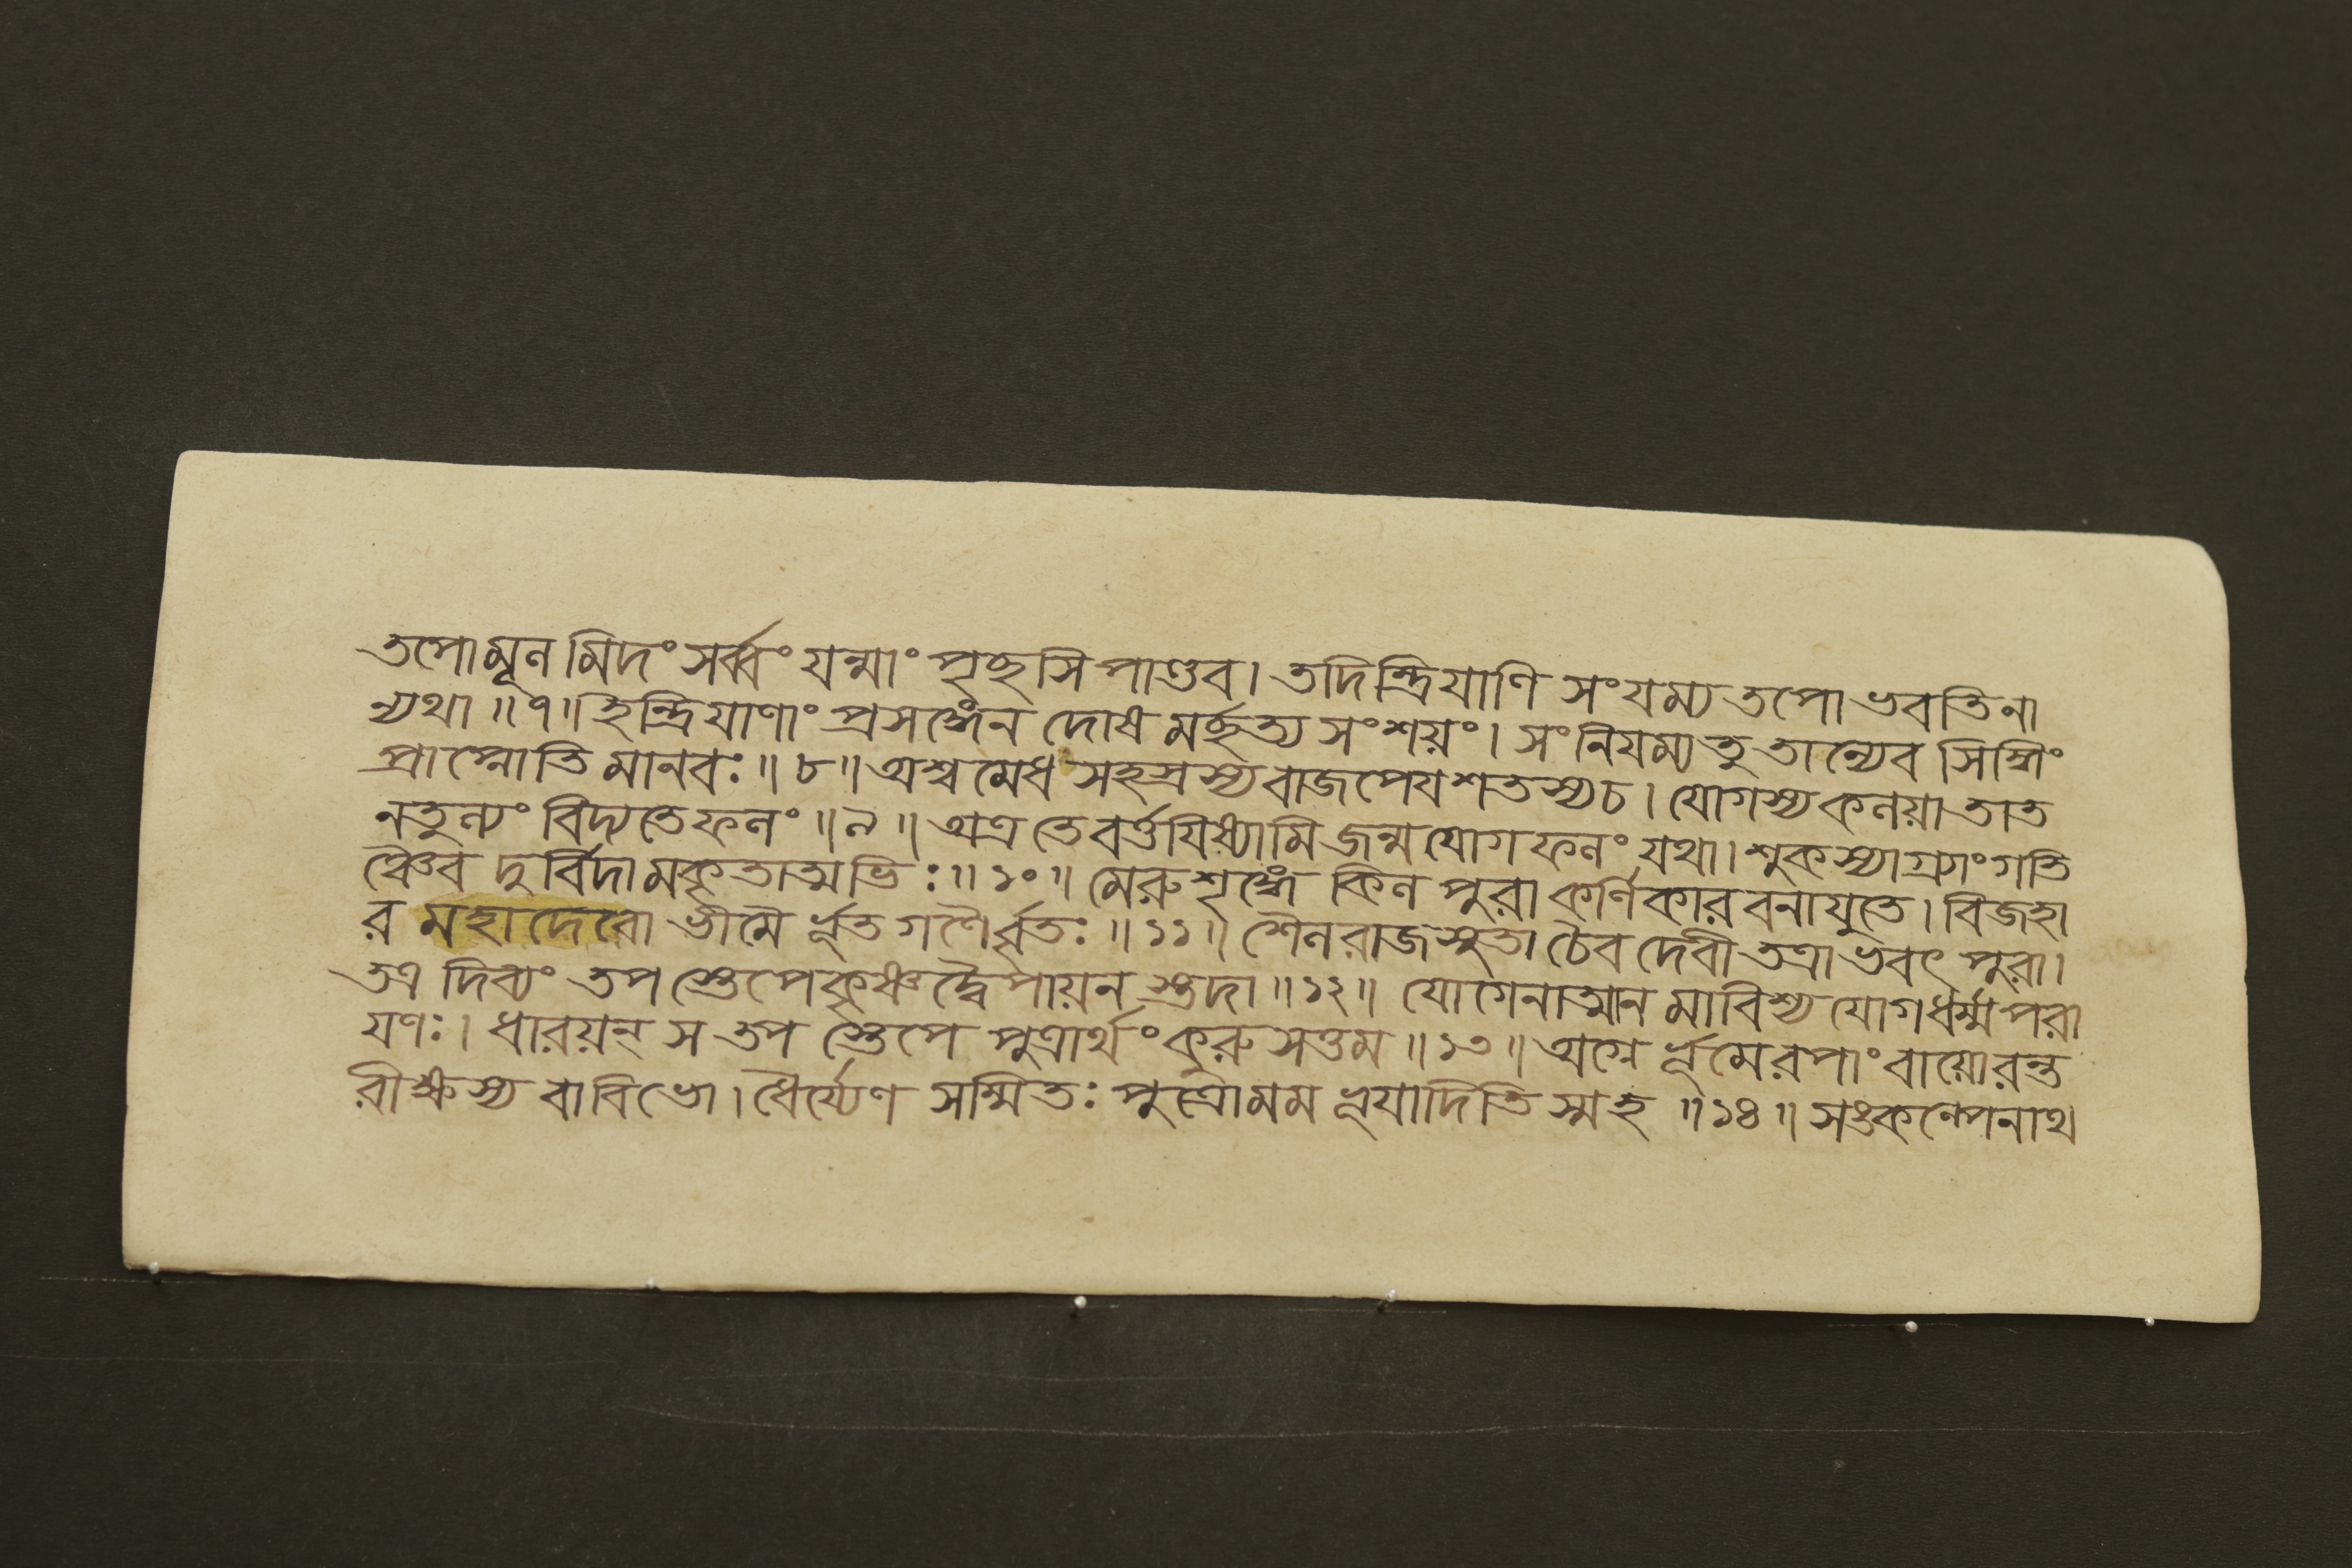 তপোমূল মিদং সর্ব্বং যন্মাং পৃচ্ছসি পাণ্ডব। তদিন্দ্রিযাণি সংযম্য তপো ভবতি না
ন্যথা ॥ ৭ ॥ ইন্দ্রিযাণাং প্রসঙ্গেন দোষ মর্চ্ছত্য সংশয়ং। সংনিযম্য তু তান্যেব সিদ্ধিং
প্রাপ্নোতি মানবঃ ॥ ৮ ॥ অশ্বমেধ সহস্রস্য বাজপেয শতস্য চ। যোগস্য কলয়া তাত
নতুল্যং বিদ্যতে ফলং ॥ ৯ ॥ অত্র তে বর্ত্তযিষ্যামি জন্ম যোগ ফলং যথা। শুকস্যাগ্র্যাং গতি
ঞ্চৈব দুর্বিদামকৃতাত্মভিঃ ॥ ১০ ॥ মেরুশৃঙ্গে কিল পুরা কর্ণিকার বনাযুতে। বিজহা
র মহাদেবো ভীমৈ র্ভূত গণৈর্বৃতঃ ॥ ১১ ॥ শৈলরাজসুতা চৈব দেবী তত্রাভবৎ পুরা।
তত্র দিব্যং তপ স্তেপে কৃষ্ণদ্বৈপায়ন স্তদা ॥ ১২ ॥ যোগেনাত্মান মাবিশ্য যোগধর্ম্মপরা
যণঃ। ধারয়ন্ স তপ স্তেপে পুত্রার্থং কুরুসত্তম ॥ ১৩ ॥ অগ্নে র্ভূমেরপাং বায়োরন্ত
রীক্ষস্য বাবিভো। ধৈর্য্যেণ সম্মিতঃ পুত্রোমম ভূযাদিতি স্মহ ॥ ১৪ ॥ সঙকল্পেনাথ